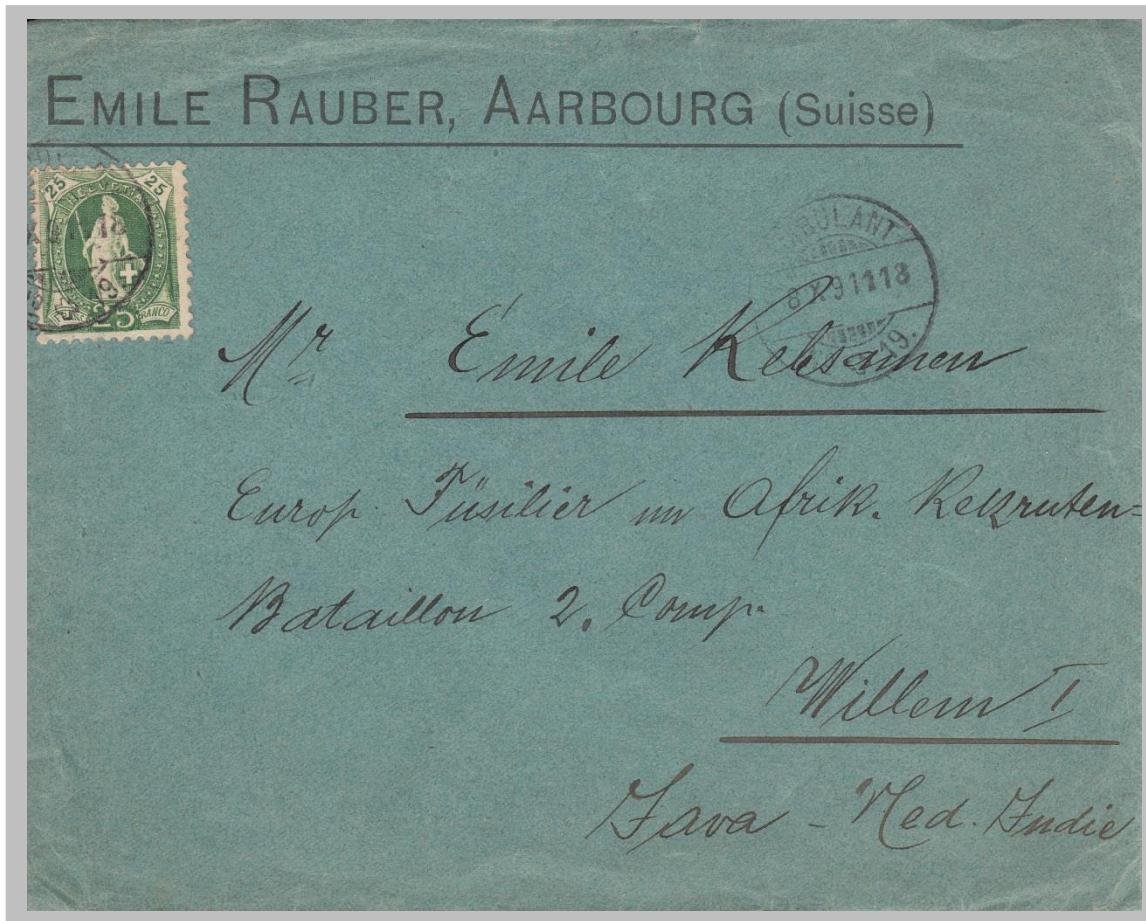 EMILE RAUBER, AARBOURG (Suisse)
25 HELVETIA 25
25
FRANCO
BULANT
8 X. 91 11 18
19.
Mr. Emile Kebsamen
Europ. Füsilier im Afrik. Rekruten=
Bataillon 2. Comp.
Willem I
Java - Ned. Indie